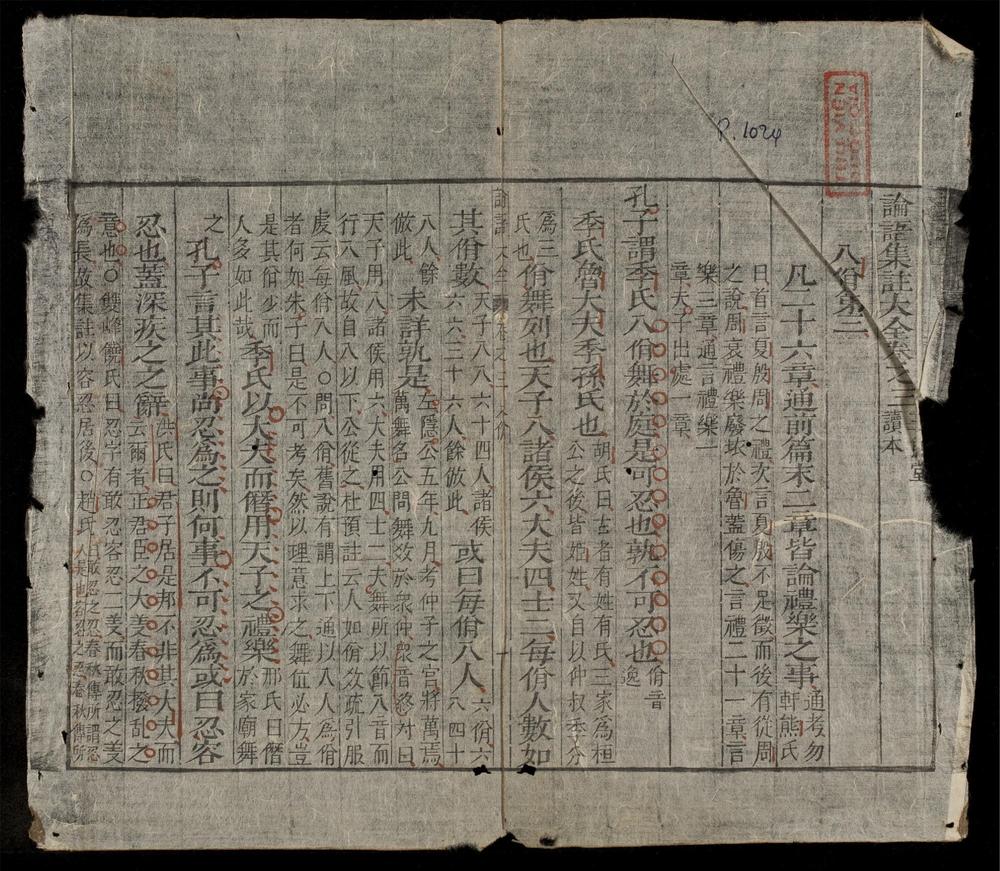 P.1024
論語集註大全卷之三
讀本
八佾第三
凡二十六章通前篇末二章皆論禮樂之事
通考勿軒熊氏
曰首言夏殷周之禮次言夏殷不足徵而後有從周
之說周衰禮樂廢壞於魯蓋傷之言禮二十一章言
樂三章通言禮樂一
章夫子出處一章
孔子謂季氏八佾舞於庭是可忍也孰不可忍也
佾音逸
季氏魯大夫季孫氏也
胡氏曰古者有姓有氏三家為桓公之後皆姬姓又自以仲叔季分
為三氏也
佾舞列也天子八諸侯六大夫四士二每佾人數如
論語大全卷之三 八佾
其佾數
天子八八六十四人諸侯六六三十六人餘倣此
或曰每佾八人
六佾六八四十
八人餘倣此
未詳孰是
左隱公五年九月考仲子之宮將萬焉
萬舞名公問舞數於衆仲衆音終對曰
天子用八諸侯用六大夫用四士二夫舞所以節八音而
行八風故自八以下公從之杜預註云人如佾數疏引服
虔云每佾八人○問八佾舊說有謂上下通以八人為佾
者何如朱子曰是不可考矣然以理意求之舞位必方豈
是其佾少而人多如此哉
季氏以大夫而僭用天子之禮樂
邢氏曰僭於家廟舞
之
孔子言其此事尚忍為之則何事不可忍為或曰忍容
忍也蓋深疾之之辭
洪氏曰君子居是邦不非其大夫而
云爾者正君臣之大義春秋撥亂之
意也○雙峰饒氏曰忍字有敢忍容忍二義而敢忍之義
為長故集註以容忍居後○趙氏
曰敢忍之忍春秋傳所謂忍
人是也容忍之忍春秋傳所